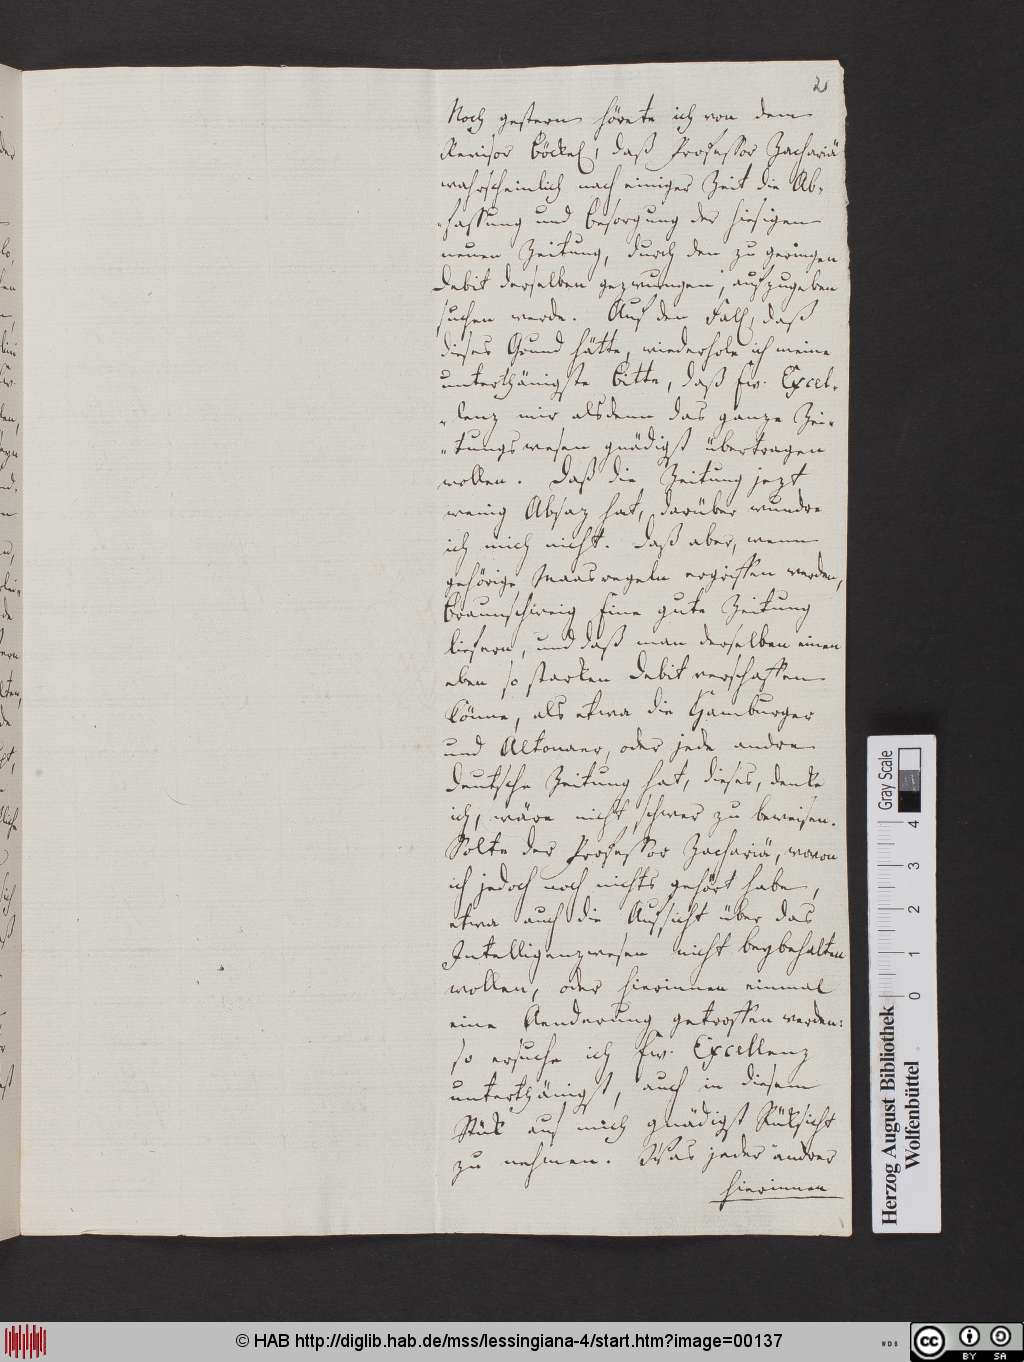 2
Noch gestern hörete ich von dem
Revisor Böckel, daß Professor Zachariä
wahrscheinlich nach einiger Zeit die Ab-
-fassung und Besorgung der hiesigen
neuen Zeitung, durch den zu geringen
Debit derselben gezwungen, aufzugeben
suchen werde. Auf den Fall, daß
dieses Grund hätte, wiederhole ich meine
unterthänigste Bitte, daß Ew. Excel-
-lenz mir alsdenn das ganze Zei-
-tungswesen gnädigst übertragen
wollen. Daß die Zeitung jezt
wenig Absaz hat, darüber wundre
ich mich nicht. Daß aber, wenn
gehörige Maasregeln ergriffen werden,
Braunschweig eine gute Zeitung
liefern, und daß man derselben einen
eben so starken Debit verschaffen
könne, als etwa die Hamburger
und Altonaer, oder jede andre
deutsche Zeitung hat, dieses, denke
ich, wäre nicht schwer zu beweisen.
Solte der Professor Zachariä, wovon
ich jedoch noch nichts gehört habe,
etwa auch die Aufsicht über das
Intelligenzwesen nicht beybehalten
wollen, oder hierinnen einmal
eine Aenderung getroffen werden:
so ersuche ich Ew. Excellenz
unterthänigst, auch in diesem
Stük auf mich gnädigst Rüksicht
zu nehmen. Was jeder andrer
hierinnen
Gray Scale
4
3
2
1
0
Herzog August Bibliothek
Wolfenbüttel
© HAB http://diglib.hab.de/mss/lessingiana-4/start.htm?image=00137
cc BY SA